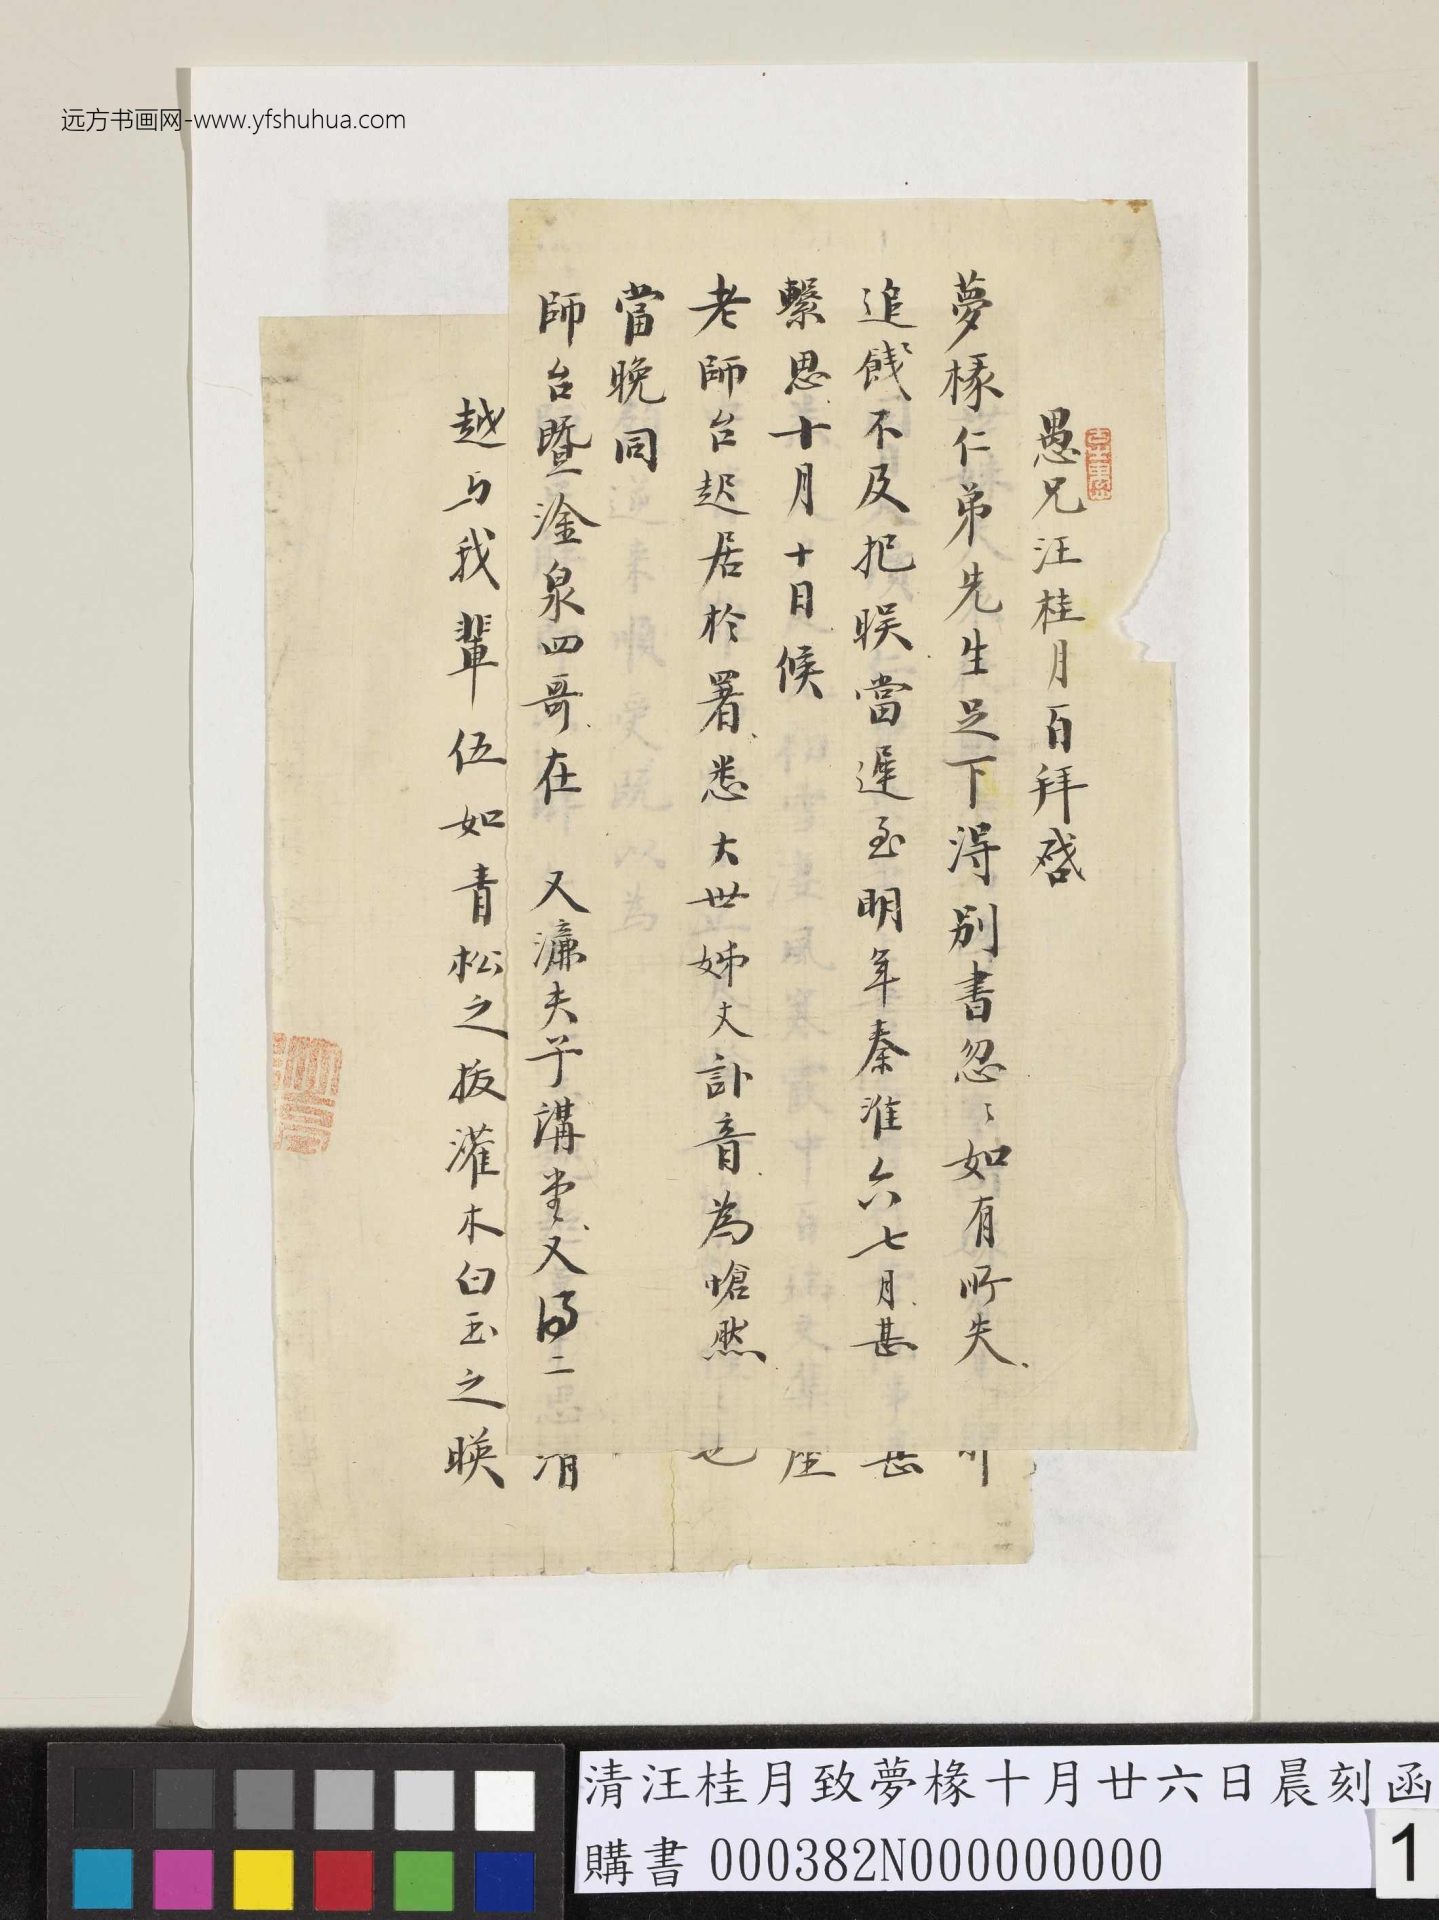 远方书画网-www.yfshuhua.com
愚兄汪桂月百拜啓
夢椽仁弟先生足下得別書忽〻如有所失
追餞不及把睽當遲至明年秦淮六七月甚
繫思十月十日候
老師台起居於署悉大世姊丈訃音為愴然
當晚同
師台暨淦泉四哥在 又濂夫子講堂又得二
越與我輩伍如青松之拔灌木白玉之暎
甚
座
也
清汪桂月致夢椽十月廿六日晨刻函
購書 000382N000000000
1